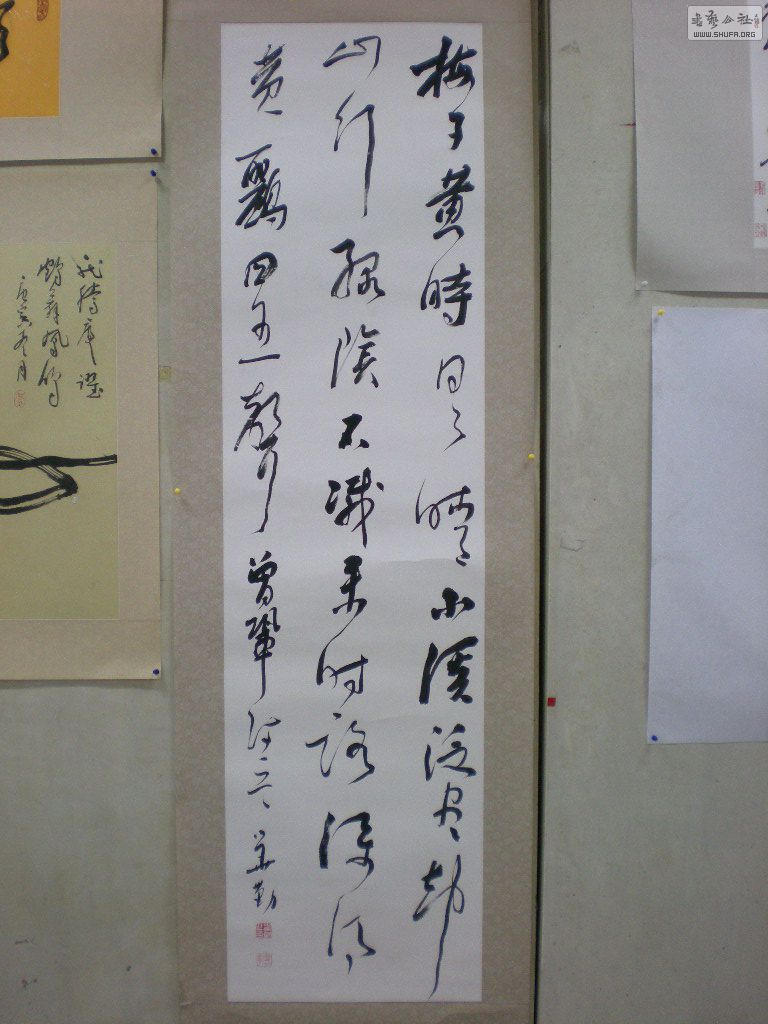 書藝公社
WWW.SHUFA.ORG
梅子黄時日々晴小溪泛尽却
山行緑陰不減来时路添得
黄鸝四五聲曾鞏詩一首
勤